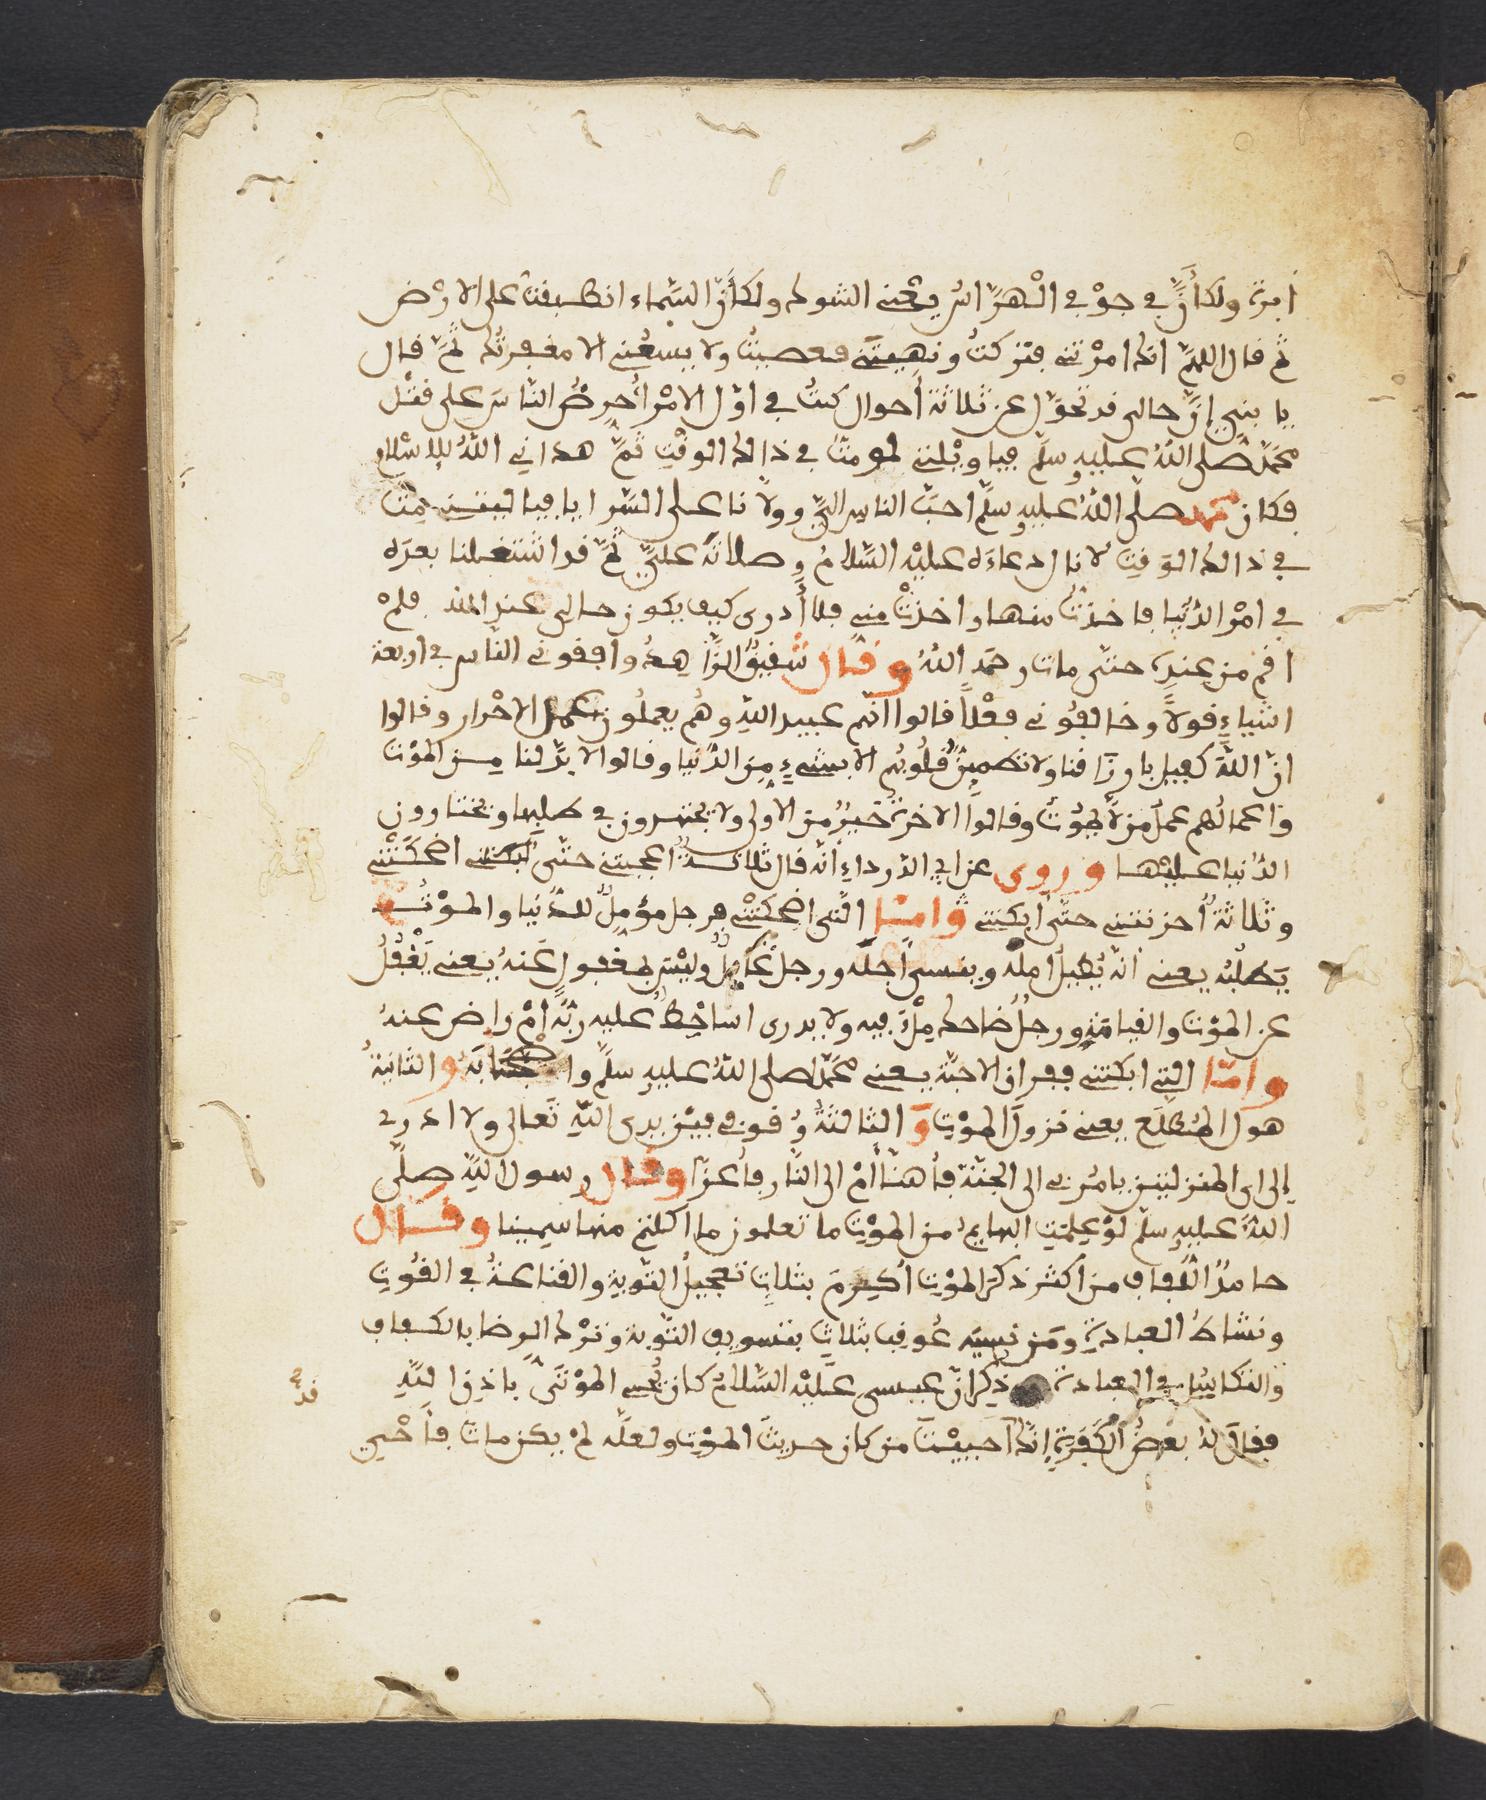 ابرة ولكأنَّ في جوفي الهراس يعني الشوك ولكأنّ السماء انطبقت على الارض
ثم قال اللهمّ انك امرتني فتركتُ ونهيتني فعصيتُ ولا يسعني الا مغفرتك ثمّ قال
يا بني إنّ حالي قد تحوّل عن ثلاثة أحوال كنتُ في اوّل الامر أُحرِضُ الناسَ على قتل
محمّد صلى اللهُ عليه وسلّم فيا ويلتي لو متّ في ذالك الوقتِ ثمَّ هداني اللهُ للاسلام
فكان محمد صلّى اللهُ عليه وسلّم احبّ الناس اليَّ وولّانا على السّرايا فيا ليتني متّ
في ذالك الوقت لانال دعاءه عليه السّلامُ وصلاتهُ عليَّ ثمَّ قد اشتغلنا بعده
في امر الدُّنيا فاخذتُ منها واخذتْ مني فلا أدرى كيف يكون حالي عند الله فلم
اقم من عنده حتّى مات رحمه اللهُ وقال شقيقٌ الزّاهدُ وافقوني النّاس في اربعة
اشياءِ قولاً وخالفوني فعلاً قالوا انّهم عبيد اللهِ وهُم يعملُون عمل الاحرار وقالوا
انّ اللهَ كفيل بارزاقنا ولا تطمئنّ قُلُوبُهم الا بشيءٍ من الدُّنيا وقالوا لا بدَّ لنا من الموت
واعمالُهم عملُ من لا يموتُ وقالوا الاخرةُ خيرٌ من الاولى ولا يجتهدون في طلبها ويختارون
الدُّنيا عليها وروى عن ابي الدّرداءِ أنّه قال ثلاثةٌ اعجبتني حتّى أضحكتني
وثلاثةٌ أحزنتني حتّى أبكتني وامّا الّتي اضحكتني فرجل مؤمِلٌ للدُّنيا والموتُ
يَطلبُه يعني انّه يُطيلُ امله وينسى اجلَه ورجلٌ غافلٌ وليس بمغفول عَنهُ يعني يَغْفُلُ
عن الموت والقيامةِ ورجلٌ ضاحك مِلْءَ فيه ولا يدرى اساخِطٌ عليه ربّهُ أمْ راض عنهُ
وامّا التي ابكتني ففراق الاحبّة يعني محمّد صلى اللهُ عليه وسلّم واصحابَهُ والثانيةُ
هول المُطَّلَعِ يعني نزولَ الموت وَالثالثةُ وُقوفي بين يدى اللهِ تعالى ولا ادري
إلى اى المنزلتين يامُرُ بي الى الجنّة فأهنّأ أمْ الى النّار فأعزّا وقال رسول اللهِ صلّى
اللهُ عليه وسلّم لوْ علِمتِ البهايمُ من الموتِ ما تعلمون ما اكلتم منها سمينا وقال
حامدٌ اللّفاف من أكثر ذكرَ الموت أُكرِمَ بثلاثٍ تعجيلُ التّوبة والقناعةُ في القُوتِ
ونشاطُ العبادةِ ومَن نسِيَه عُوقِب بثلاثٍ تسويف التّوبة وترك الرضا بالكفاف
والتكاسُل في العبادة ذُكر انّ عيسى عَليه السّلامُ كان يُحيى الموتى باذن اللهِ
فقال له بعضُ الكَفَرةِ إنّك أحييتَ من كان حديثَ الموت ولعلّه لم يكن مات فأحيي